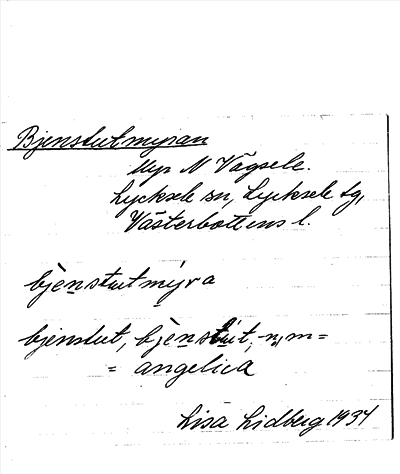 Bjenstutmyran
Myr N Vägsele.
Lycksele sn, Lycksele tg,
Västerbottens l.
bjenstutmyra
bjenstut, bjenstut, -n, m =
= angelica
Lisa Lidberg 1934